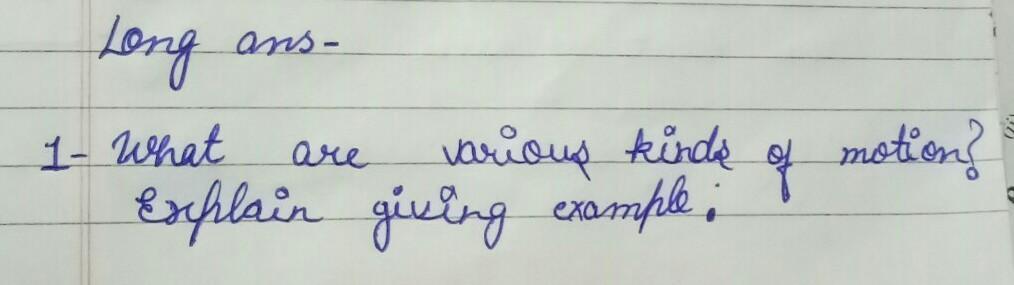 Long ans-
1- What are various kinds of motion?
Explain giving example.